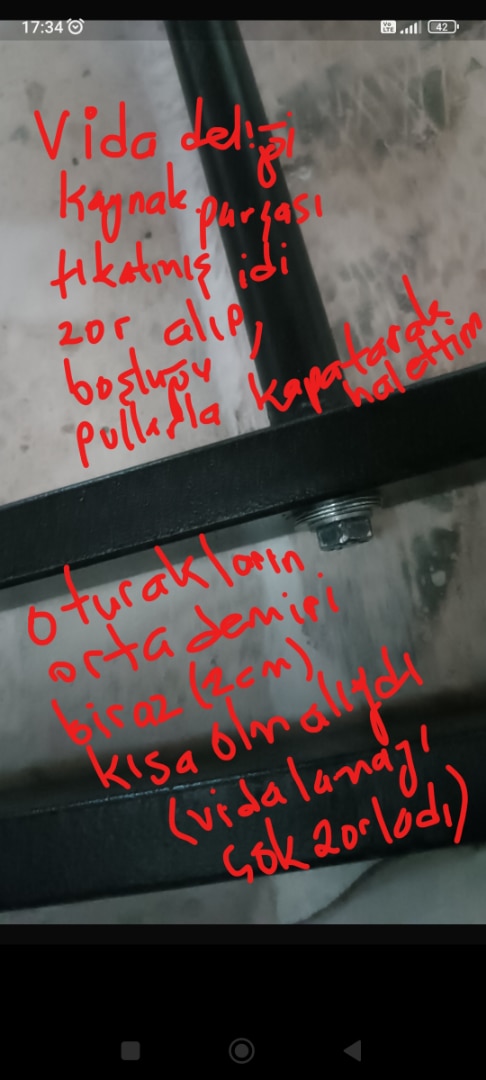 17:34
Vo LTE
42
Vida deliği
kaynak parçası
tıkatmış idi
zor alıp,
boşluğu
pullarla kapatarak
halettim
oturakların
orta demiri
biraz (2cm)
kısa olmalıydı
(vidalamayı
çok zorladı)